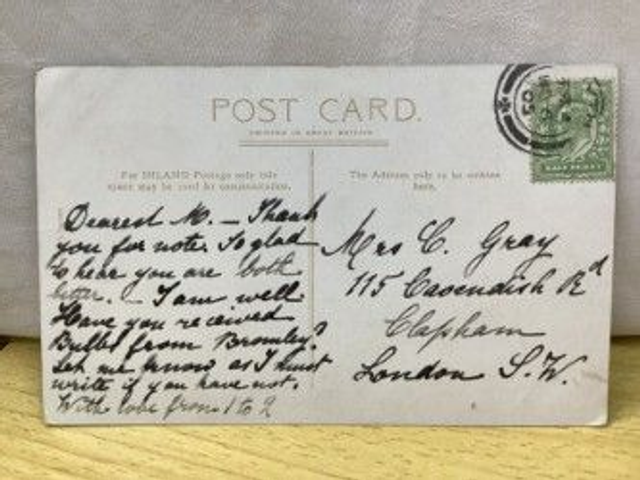 POST CARD.
PRINTED IN GREAT BRITAIN
For INLAND Postage only this
space may be used for communication.
The Address only to be written
here.
Dearest M. — Thank
you for note. So glad
to hear you are both
better. — I am well.
Have you received
Bulbs from Bromley?
Let me know as I must
write if you have not.
With love from 1 to 2
Mrs C. Gray
115 Cavendish Rd
Clapham
London S.W.
HALF PENNY